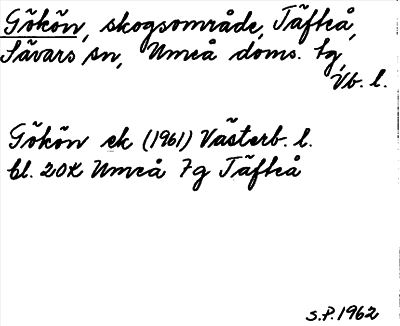 Gökön, skogsområde, Täfteå,
Sävars sn, Umeå doms. tg,
Vb. l.
Gökön ek (1961) Västerb. l.
bl. 20K Umeå 7g Täfteå
S.P. 1962